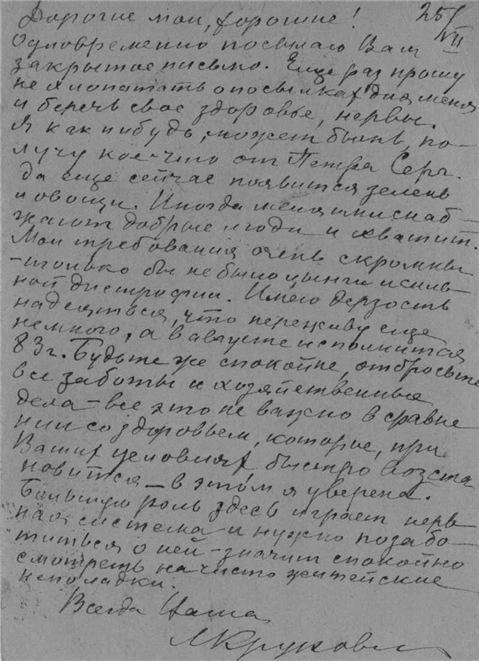 Дорогие мои, хорошие! 25/VII
Одновременно посылаю Вам
закрытое письмо. Еще раз прошу
не хлопотать о посылках для меня
и беречь свое здоровье, нервы.
Я как нибудь, может быть, по-
лучу кое-что от Петра Серг.
да еще сейчас появится зелень
и овощи. Иногда меня ими снаб-
жают добрые люди и хватит.
Мои требования очень скромны
- только бы не было цынги и силь-
ной дистрофии. Имею дерзость
надеяться, что переживу еще
немного, а в августе исполнится
83 г. Будьте же спокойне, отбросьте
все заботы и хозяйственные
дела - все это не важно в сравне
нии со здоровьем, которое, при
Ваших условиях быстро возста
новится - в этом я уверена.
Большую роль здесь играет нерв
ная система и нужно позабо
титься о ней - значит спокойно
смотреть на чисто житейские
неполадки.
Всегда Ваша